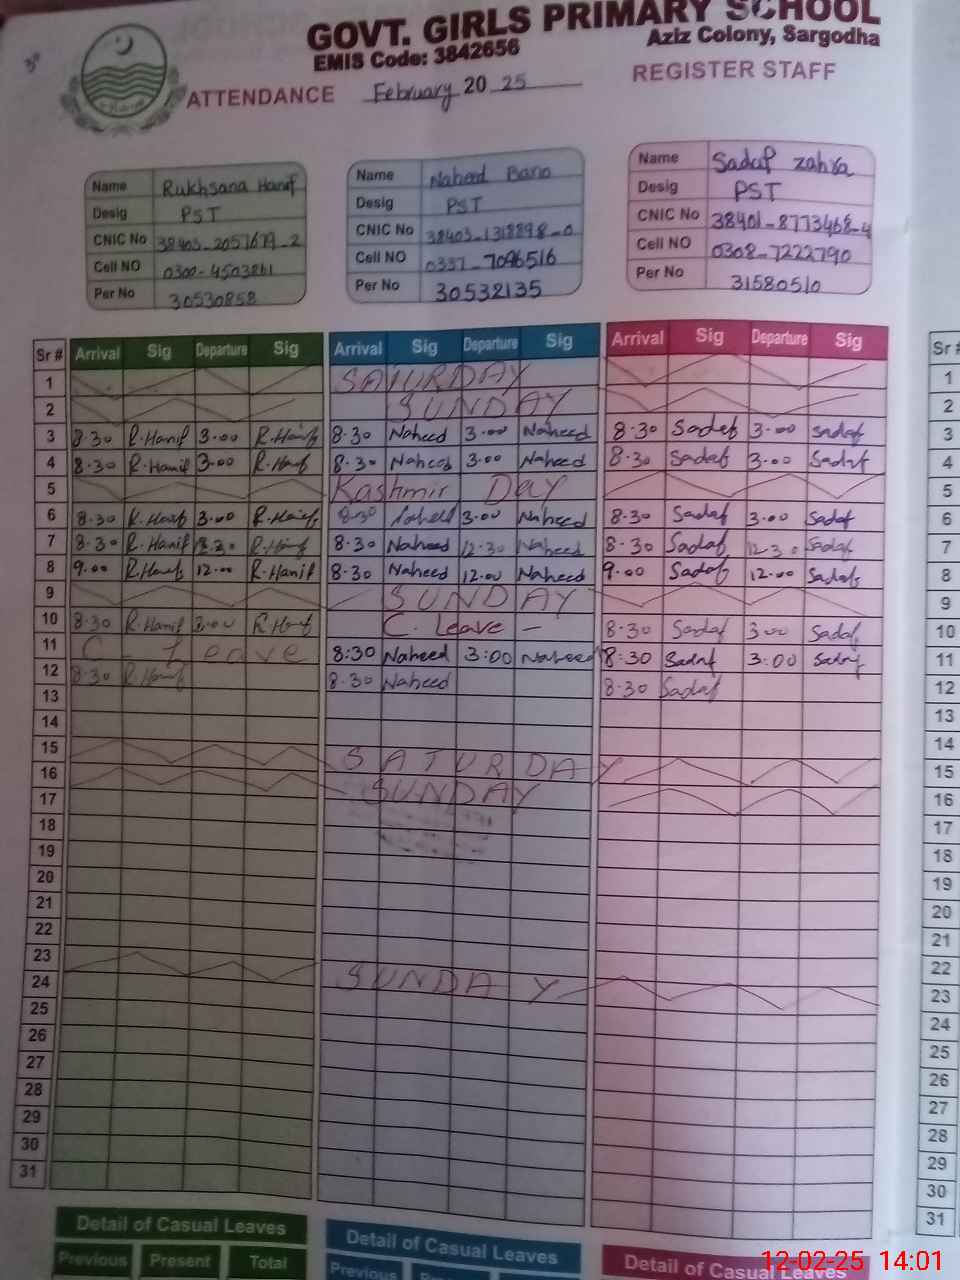 GOVT. GIRLS PRIMARY SCHOOL
EMIS Code: 3842656 Aziz Colony, Sargodha
ATTENDANCE February 2025 REGISTER STAFF
Name Rukhsana Hanif
Desig PST
CNIC No 38403-2057679-2
Cell NO 0300-4503861
Per No 30530858
Name Naheed Bano
Desig PST
CNIC No 38403-1318898-0
Cell NO 0337-7096516
Per No 30532135
Name Sadaf zahra
Desig PST
CNIC No 38401-8773468-4
Cell No 0308-7222790
Per No 31580510
Sr # Arrival Sig Departure Sig Arrival Sig Departure Sig Arrival Sig Departure Sig Sr #
1 SATURDAY 1
2 SUNDAY 2
3 8.30 R.Hanif 3.00 R.Hanif 8.30 Naheed 3.00 Naheed 8.30 Sadaf 3.00 Sadaf 3
4 8.30 R.Hanif 3.00 R.Hanif 8.30 Naheed 3.00 Naheed 8.30 Sadaf 3.00 Sadaf 4
5 Kashmir Day 5
6 8.30 R.Hanif 3.00 R.Hanif 8.30 Naheed 3.00 Naheed 8.30 Sadaf 3.00 Sadaf 6
7 8.30 R.Hanif 12.30 R.Hanif 8.30 Naheed 12.30 Naheed 8.30 Sadaf 12.30 Sadaf 7
8 9.00 R.Hanif 12.00 R.Hanif 8.30 Naheed 12.00 Naheed 9.00 Sadaf 12.00 Sadaf 8
9 SUNDAY 9
10 8.30 R.Hanif 3.00 R.Hanif C. Leave - 8.30 Sadaf 3.00 Sadaf 10
11 C - Leave 8:30 Naheed 3:00 Naheed 8:30 Sadaf 3:00 Sadaf 11
12 8.30 R.Hanif 8.30 Naheed 8.30 Sadaf 12
13 13
14 14
15 SATURDAY 15
16 SUNDAY 16
17 17
18 18
19 19
20 20
21 21
22 22
23 SUNDAY 23
24 24
25 25
26 26
27 27
28 28
29 29
30 30
31 31
Detail of Casual Leaves Detail of Casual Leaves Detail of Casual Leaves
Previous Present Total Previous
12-02-25 14:01